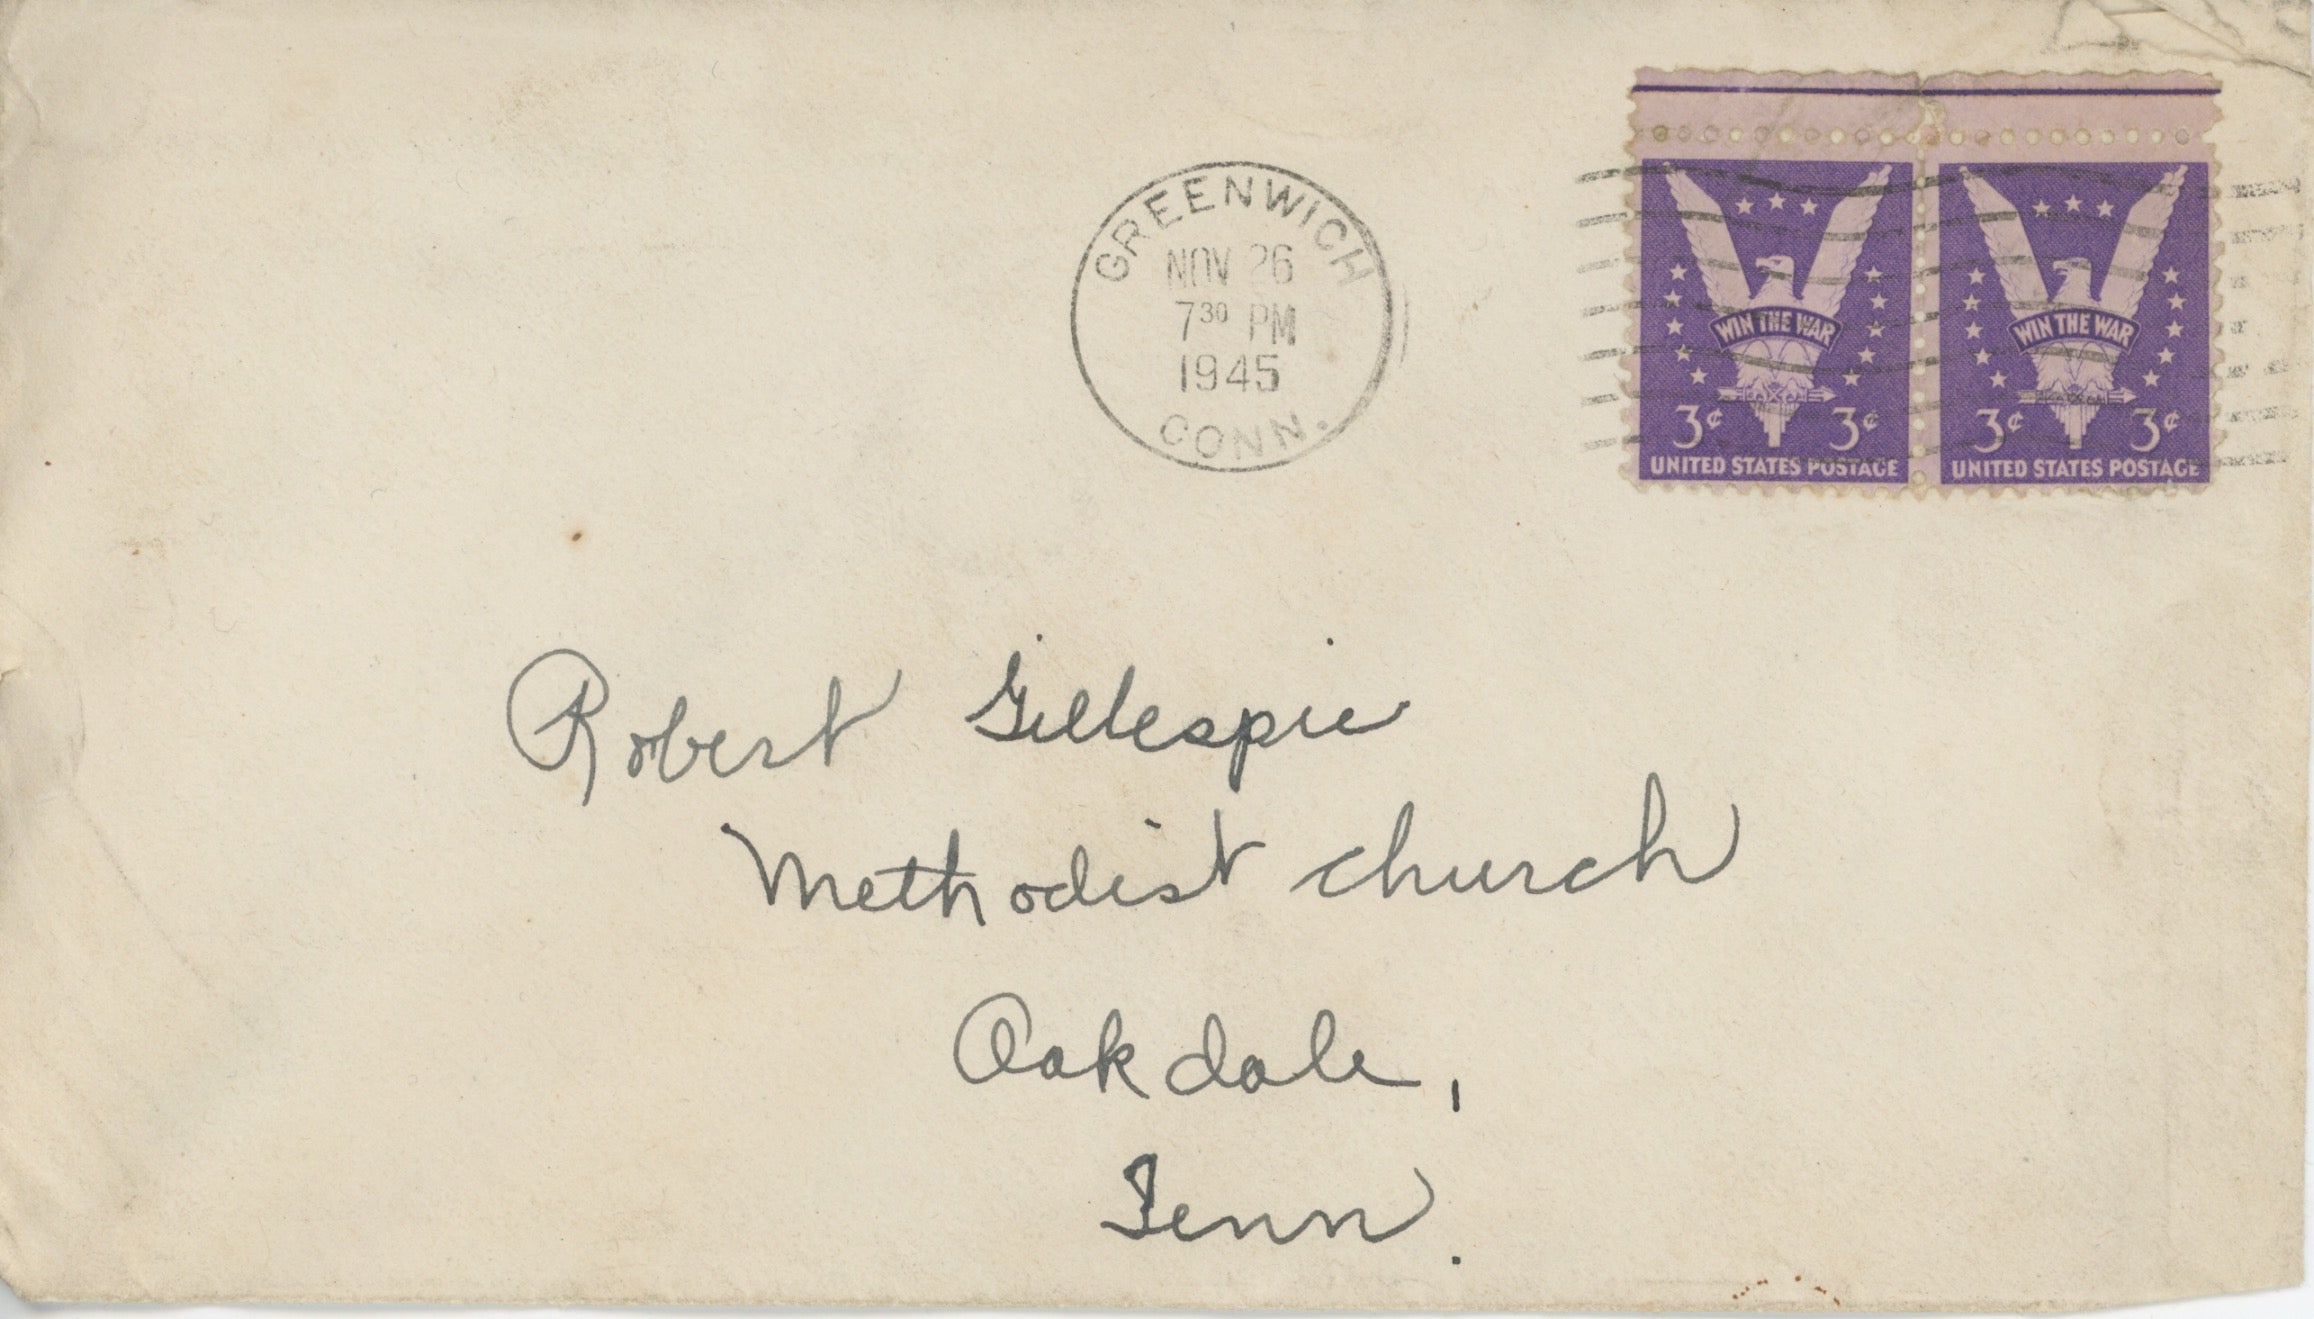 GREENWICH
NOV 26
7 30 PM
1945
CONN.
WIN THE WAR
3¢ 3¢
UNITED STATES POSTAGE
WIN THE WAR
3¢ 3¢
UNITED STATES POSTAGE
Robert Gillespie
Methodist church
Oakdale,
Tenn.